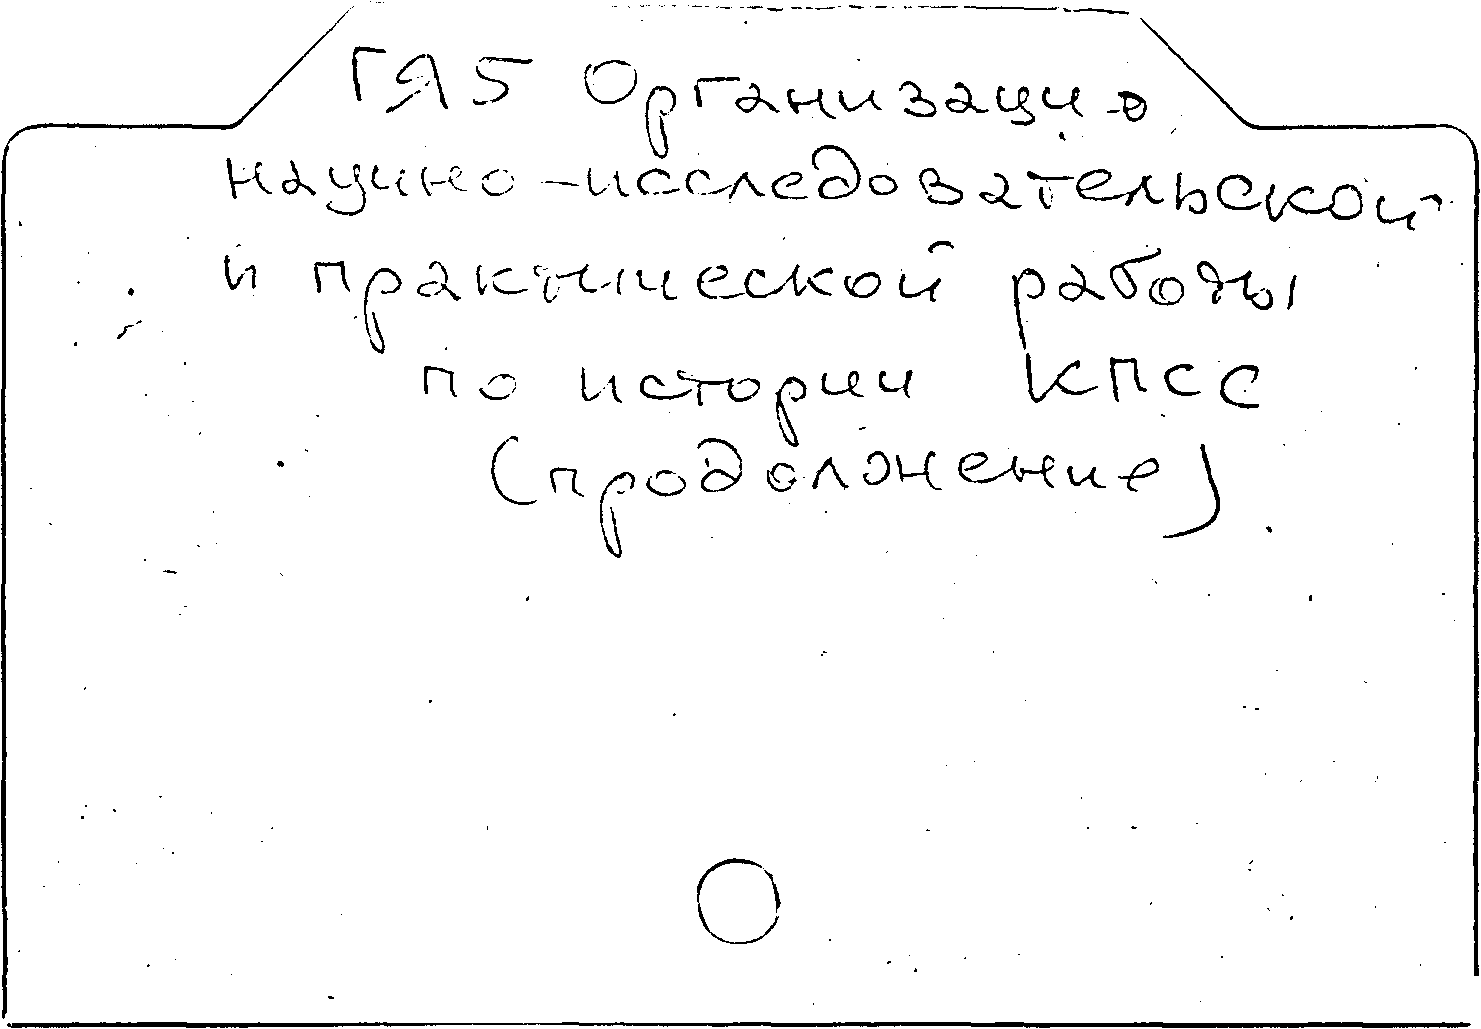 ГЯ5 Организация
научно-исследовательской
и практической работы
по истории КПСС
(продолжение)